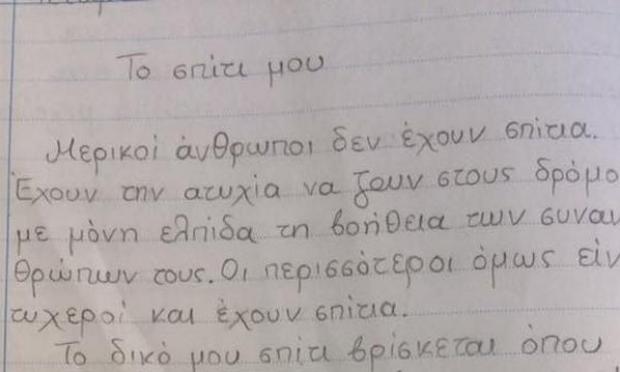 Το σπίτι μου
Μερικοί άνθρωποι δεν έχουν σπίτια.
Έχουν την ατυχία να ζουν στους δρόμο
με μόνη ελπίδα τη βοήθεια των συναν
θρώπων τους. Οι περισσότεροι όμως είν
τυχεροί και έχουν σπίτια.
Το δικό μου σπίτι βρίσκεται όπου